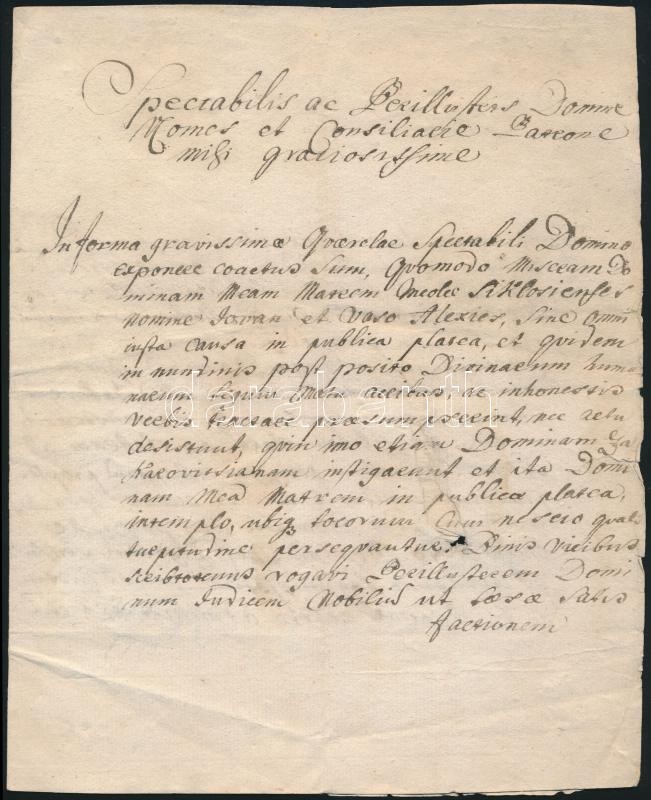 Spectabilis ac Perillustris Domine
Comes et Consiliarie Patrone
mihi gratiosissime
In forma gravissimæ Quærelae Spectabili Domino
exponere coactus sum, Quomodo Miseram Do
minam Meam Matrem Incolæ Siklosienses
nomine Iovan et Vaso Alexies, sine omni
iusta causa in publica platea, et quidem
in nundinis post posito Divinarum huma
narum legum Metu acribus, ac inhonestis
verbis tractare præsumpserint, nec actu
desistunt, quin imo etiam Dominam
instigarunt et ita Domi
nam Mea Matrem in publica platea,
in templo, ubiq locorum Cum nescio quali
turpitudine persequantur. Binis vicibus
rogavi Perillustrem Domi
num Iudicem Nobiliu ut læsæ satis
factionem
darabanth